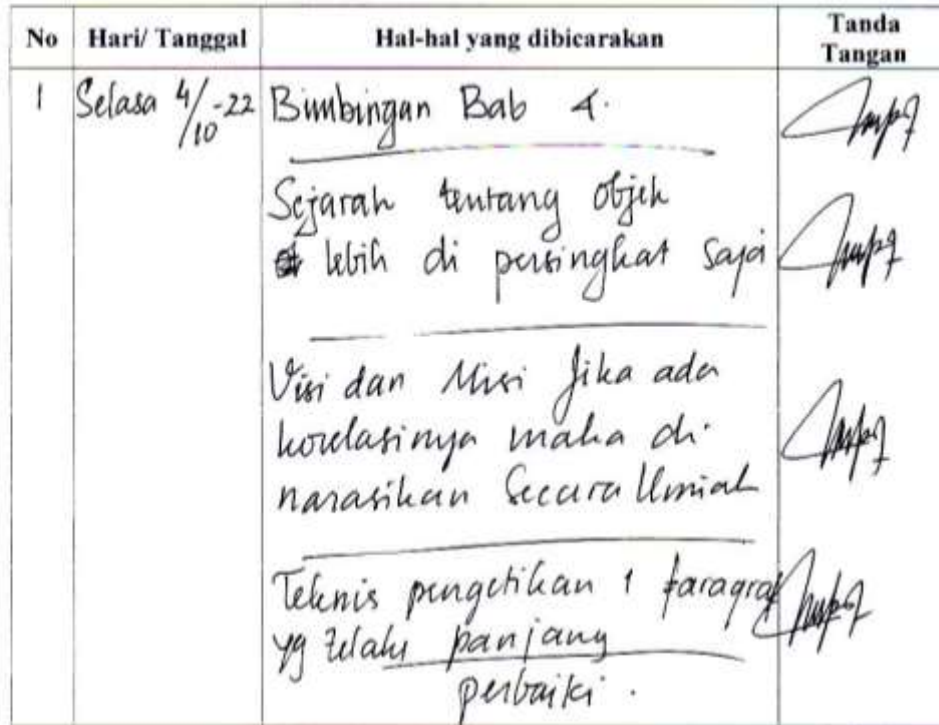 No Hari/ Tanggal Hal-hal yang dibicarakan Tanda Tangan
1 Selasa 4/10-22 Bimbingan Bab 4.
Sejarah tentang objek
lebih di persingkat saja
Visi dan Misi Jika ada
korelasinya maka di
narasikan Secara Ilmiah
Teknis pengetikan 1 paragraf
yg telalu panjang
perbaiki.